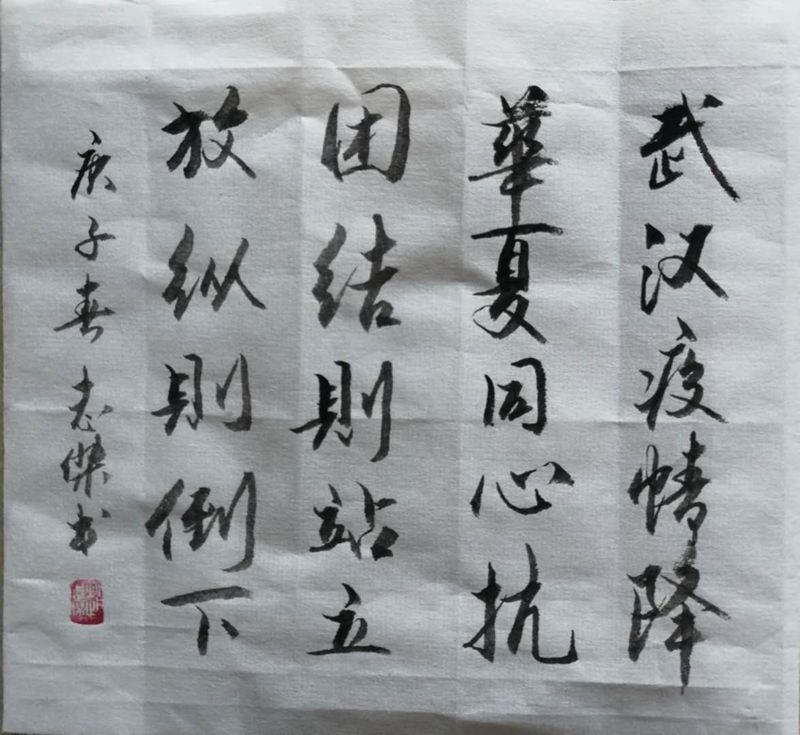 武汉疫情降
華夏同心抗
团结則站立
放纵則倒下
庚子春 志傑书